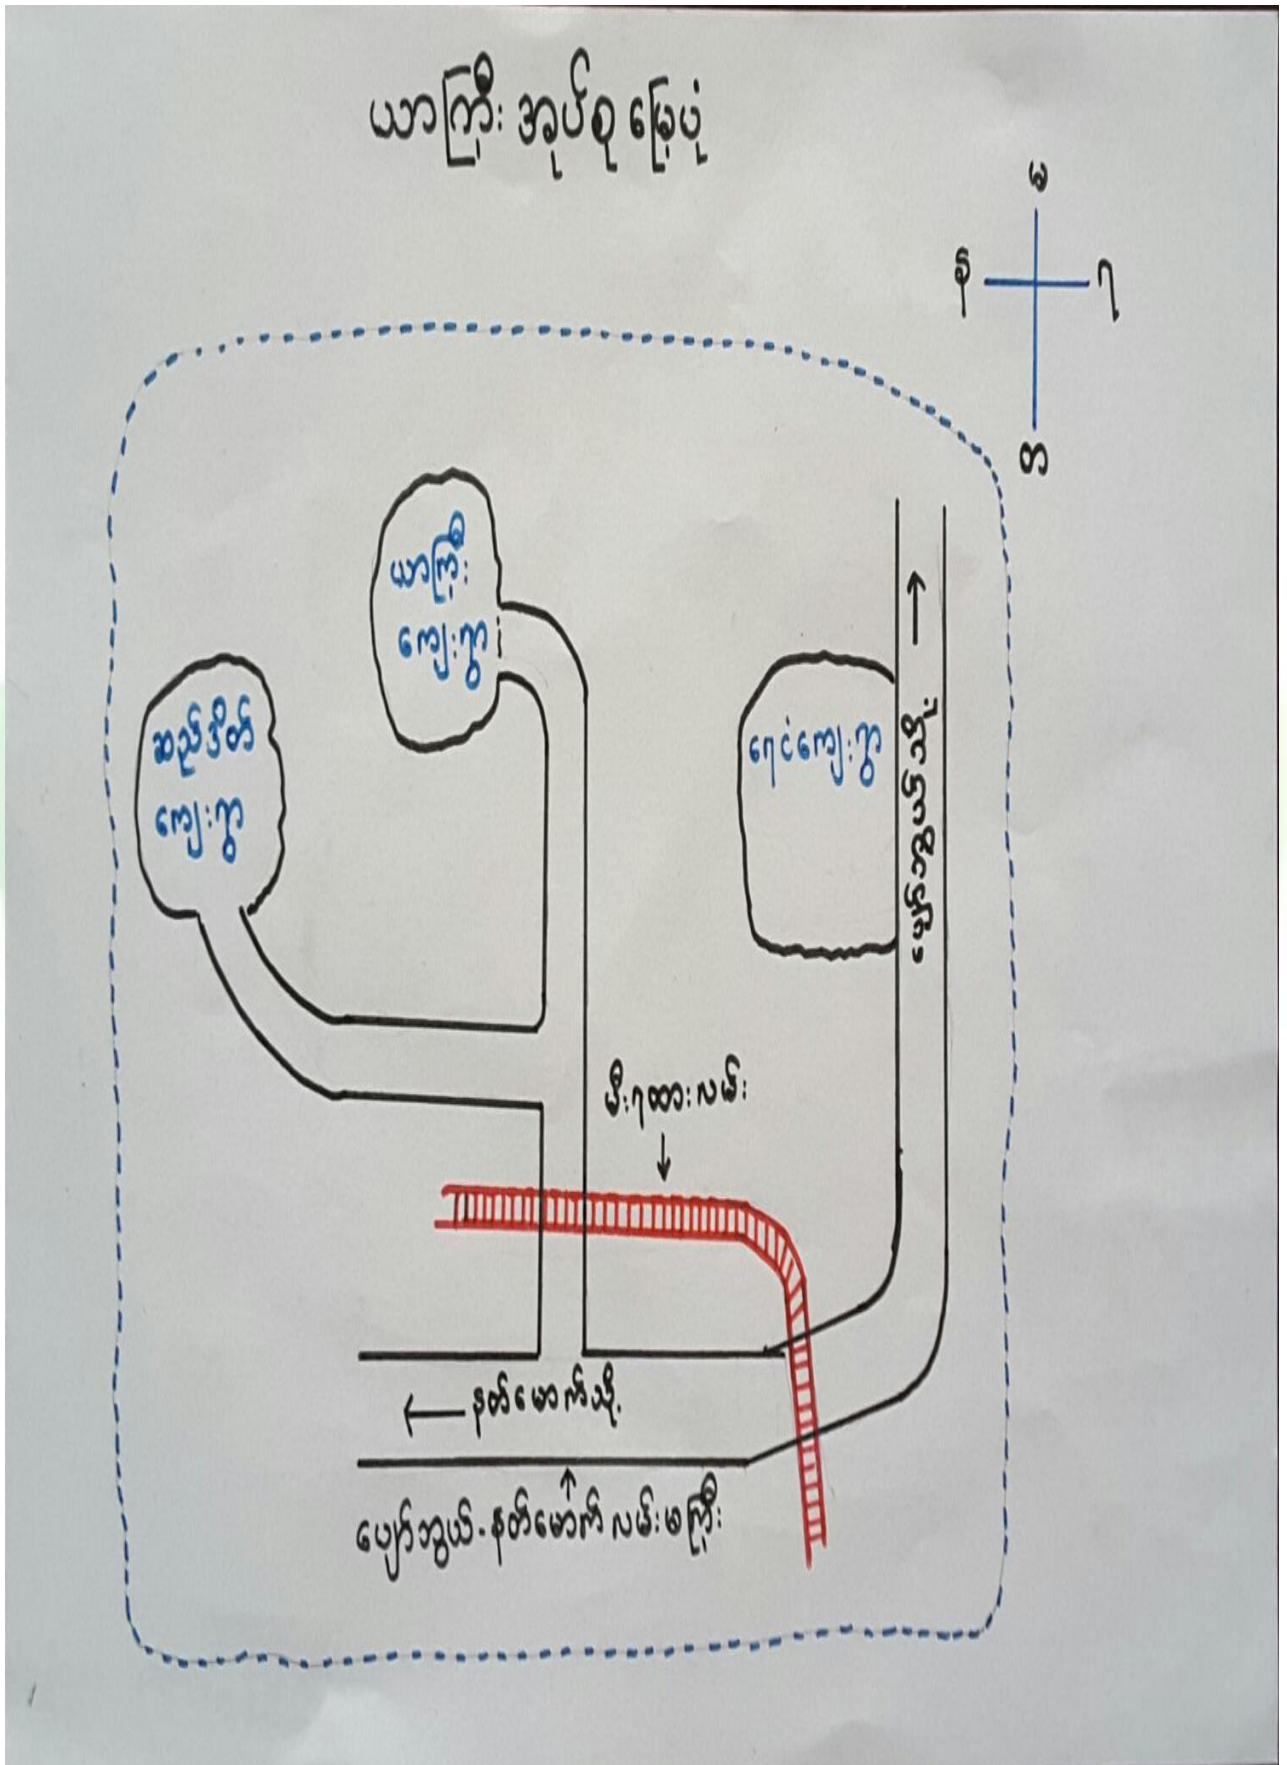 ယာကြီး အုပ်စု မြေပုံ
မ
န
ရ
တ
ယာကြီး
ကျေးရွာ
ဆည်အိတ်
ကျေးရွာ
ရေငံကျေးရွာ
ပျော်ဘွယ်သို့
မီးရထားလမ်း
နတ်မောက်သို့
ပျော်ဘွယ်-နတ်မောက် လမ်းမကြီး